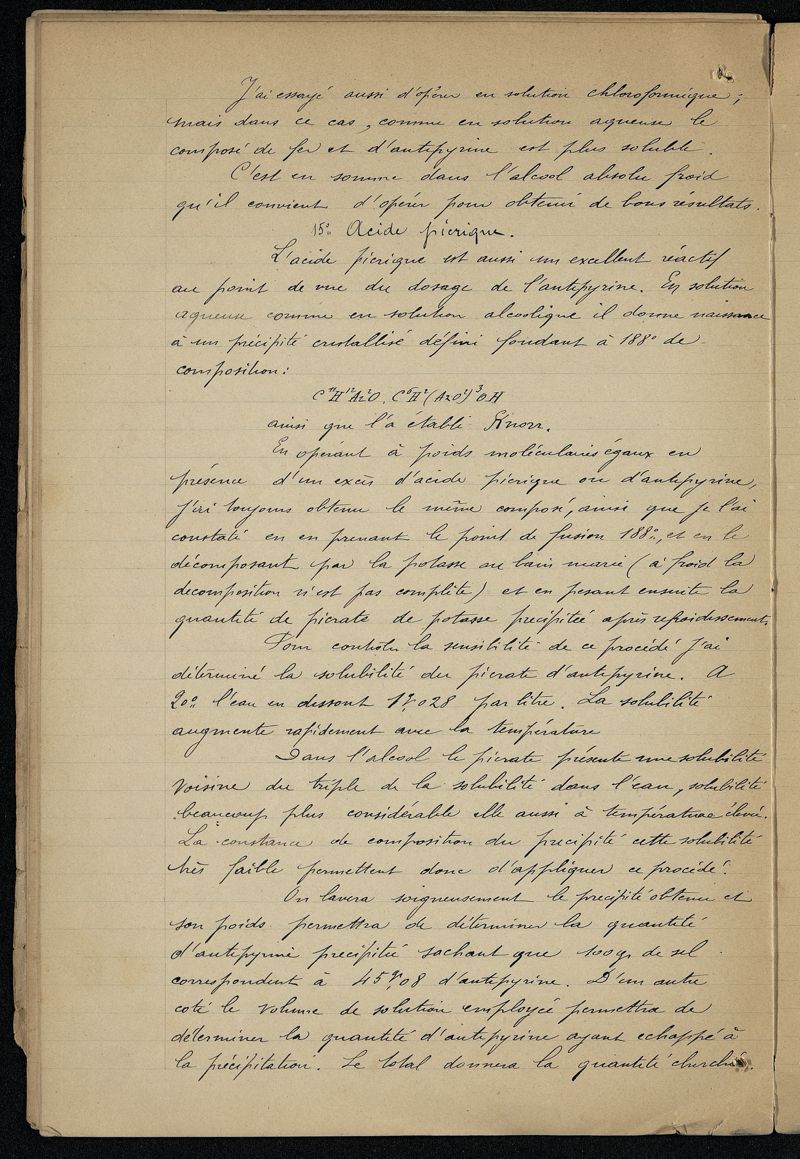 J'ai essayé aussi d'opérer en solution chloroformique ;
mais dans ce cas, comme en solution aqueuse le
composé de fer et d'antipyrine est plus soluble.
C'est en somme dans l'alcool absolu froid
qu'il convient d'opérer pour obtenir de bons résultats.
15° Acide picrique.
L'acide picrique est aussi un excellent réactif
au point de vue du dosage de l'antipyrine. En solution
aqueuse comme en solution alcoolique il donne naissance
à un précipité cristallisé défini fondant à 188° de
composition :
C¹¹H¹²Az²O, C⁶H²(AzO²)³OH
ainsi que l'a établi Knorr.
En opérant à poids moléculaires égaux en
présence d'un excès d'acide picrique ou d'antipyrine,
j'ai toujours obtenu le même composé, ainsi que je l'ai
constaté en en prenant le point de fusion 188°, et en le
décomposant par la potasse au bain marie (à froid la
decomposition n'est pas complète) et en pesant ensuite la
quantité de picrate de potasse precipitée après refroidissement.
Pour controler la sensibilité de ce procédé j'ai
déterminé la solubilité du picrate d'antipyrine. A
20° l'eau en dissout 1gr,028 par litre. La solubilité
augmente rapidement avec la température
Dans l'alcool le picrate présente une solubilité
voisine du triple de la solubilité dans l'eau, solubilité
beaucoup plus considérable elle aussi à température élevée.
La constance de composition du precipité cette solubilité
très faible permettent donc d'appliquer ce procédé.
On lavera soigneusement le precipité obtenu et
son poids permettra de déterminer la quantité
d'antipyrine precipitée sachant que 100gr de sel
correspondent à 45gr,08 d'antipyrine. D'un autre
coté le volume de solution employée permettra de
déterminer la quantité d'antipyrine ayant echappé à
la précipitation. Le total donnera la quantité cherchée.